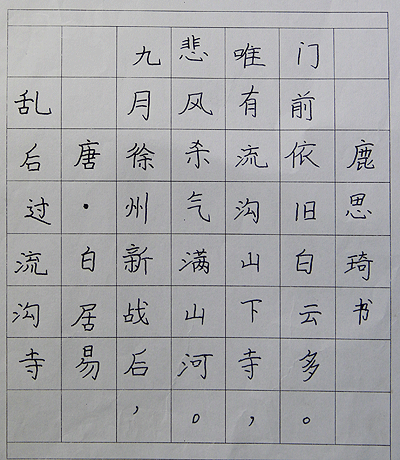 乱后过流沟寺
唐·白居易
九月徐州新战后，
悲风杀气满山河。
唯有流沟山下寺，
门前依旧白云多。
鹿思琦书